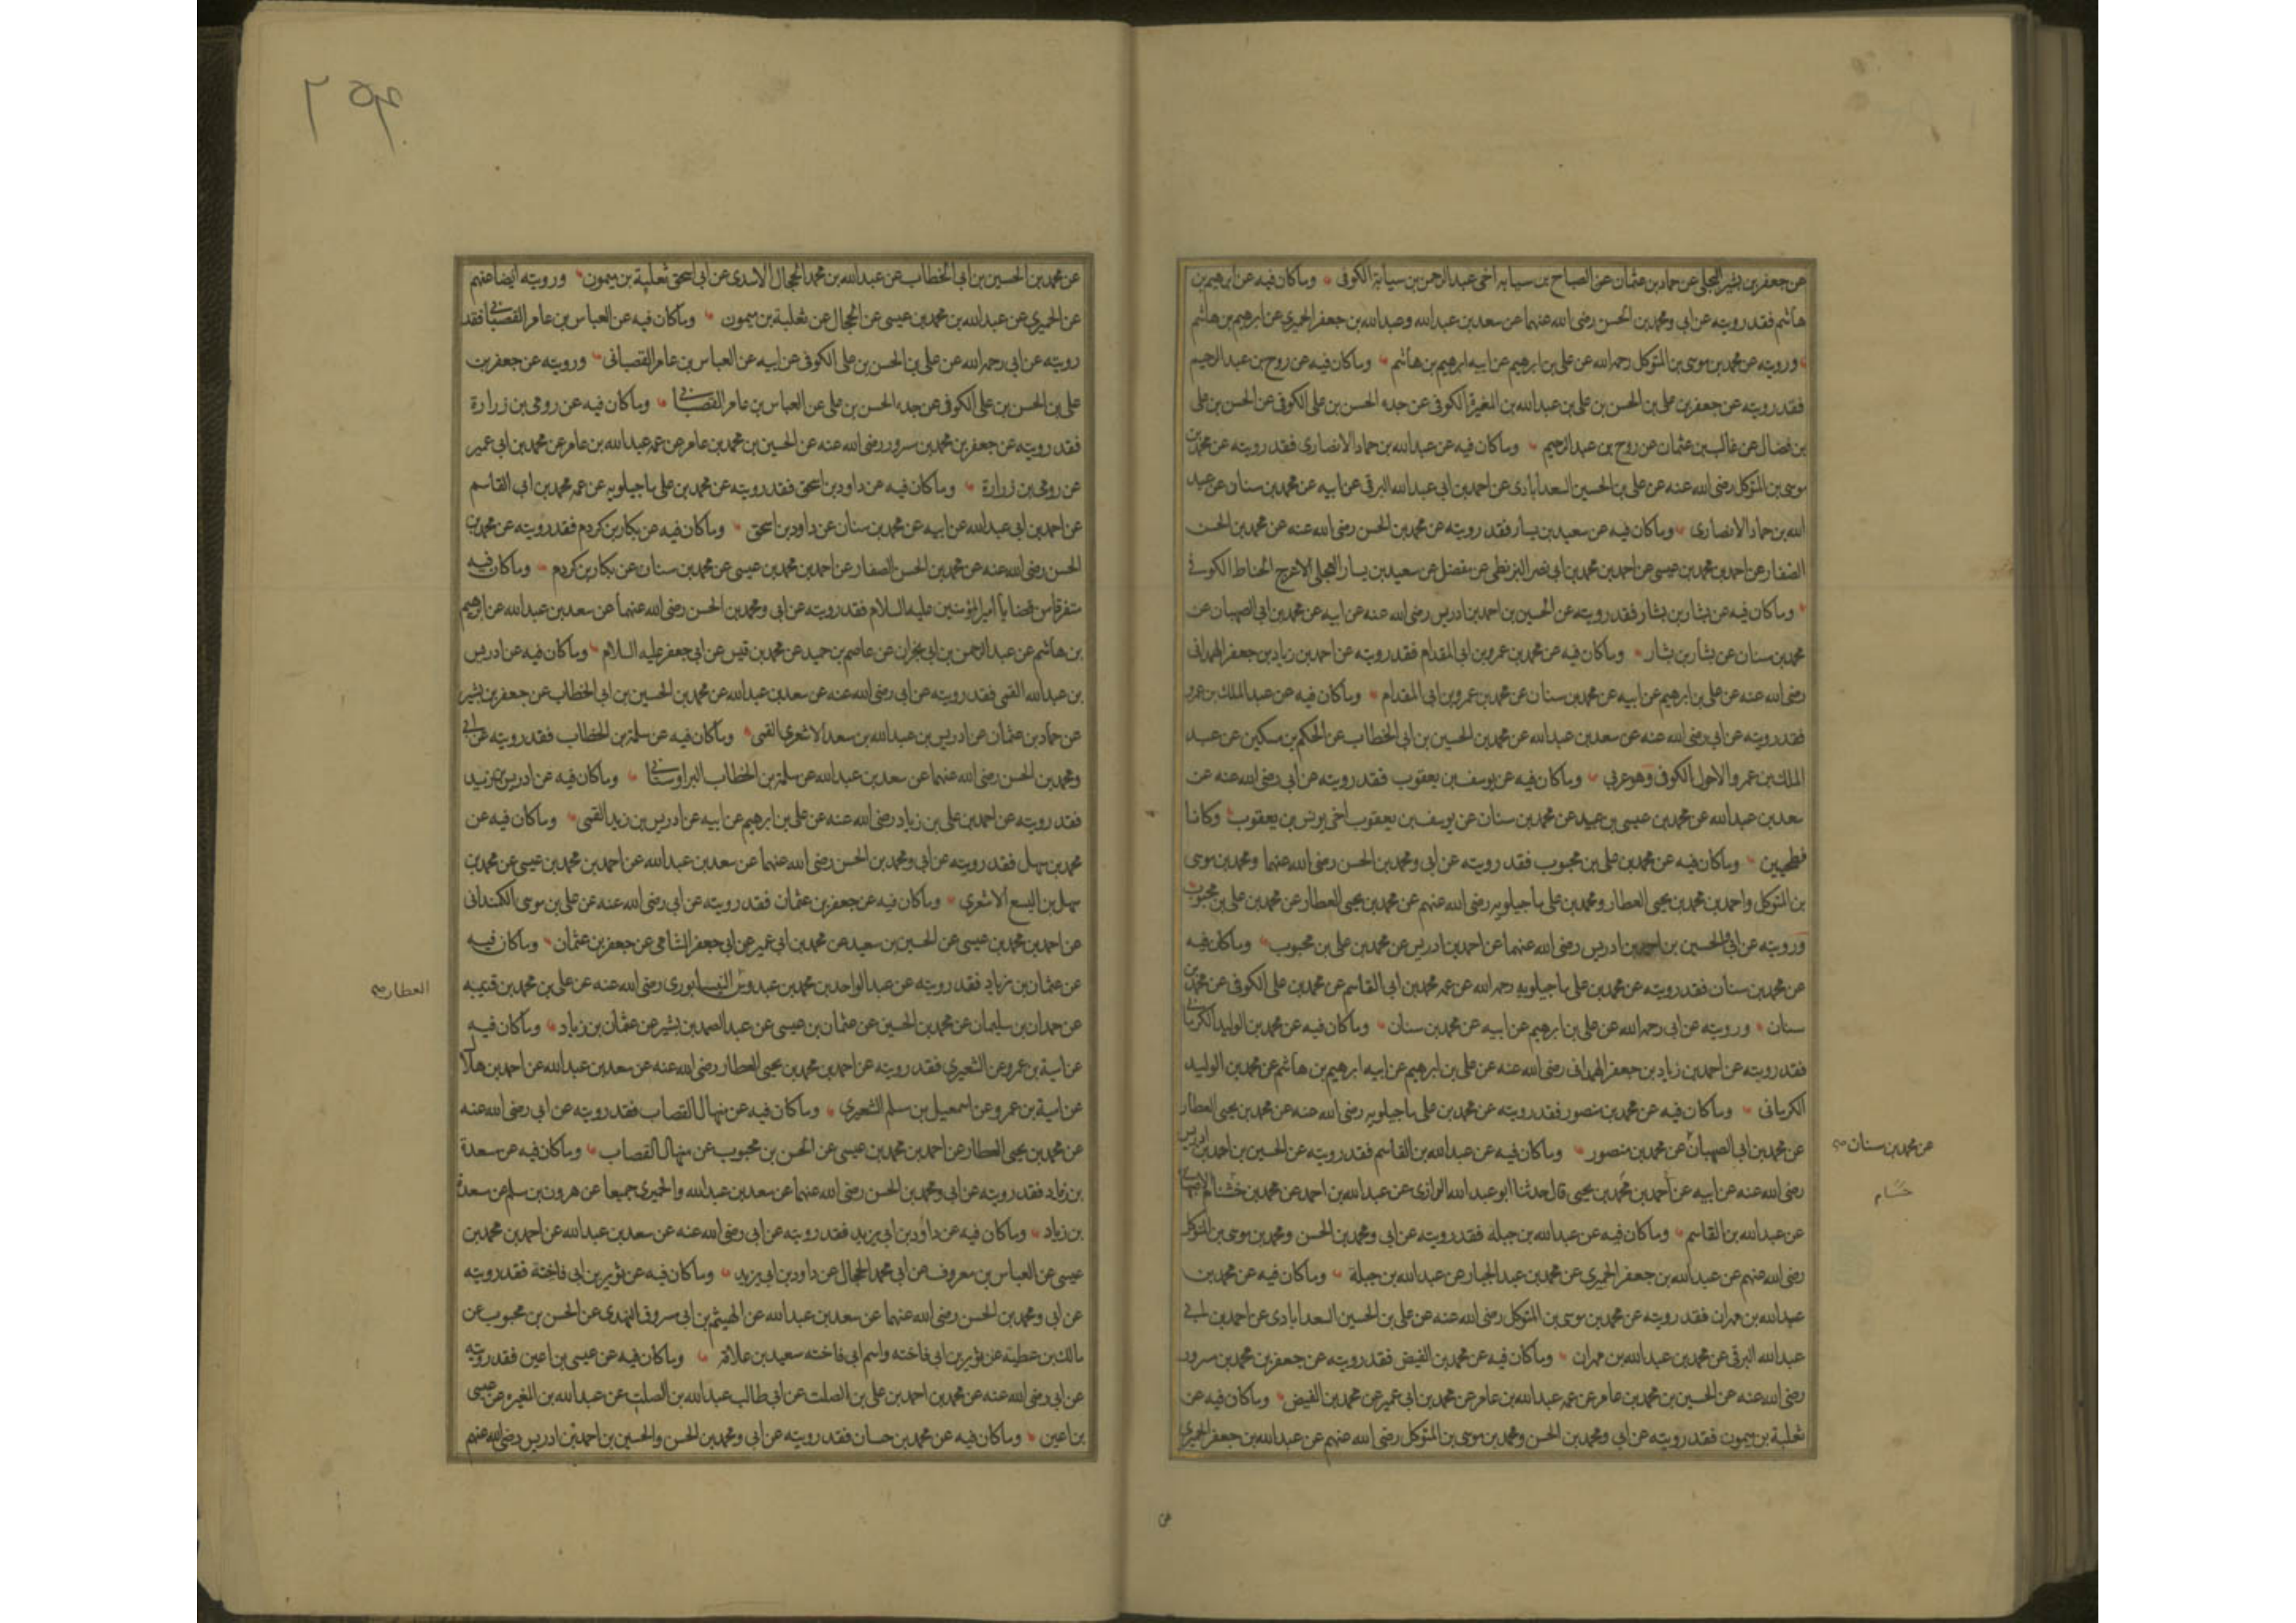 عن جعفر بن بشير البجلى عن حماد بن عثمان عن الصباح بن سيابه اخى عبد الرحمن بن سيابة الكوفى وماكان فيه عن ابرهيم بن
هاشم فقد رويته عن ابى ومحمد بن الحسن رضى الله عنهما عن سعد بن عبد الله وعبد الله بن جعفر الحميرى عن ابرهيم بن هاشم
ورويته عن محمد بن موسى بن المتوكل رحمه الله عن على بن ابرهيم عن ابيه ابرهيم بن هاشم وماكان فيه عن روح بن عبد الرحيم
فقد رويته عن جعفر بن على بن الحسن بن على بن عبد الله بن المغيرة الكوفى عن جده الحسن بن على الكوفى عن الحسن بن على
بن فضال عن غالب بن عثمان عن روح بن عبد الرحيم وماكان فيه عن عبد الله بن حماد الانصارى فقد رويته عن محمد بن
موسى بن المتوكل رضى الله عنه عن على بن الحسين السعدآبادى عن احمد بن ابى عبد الله البرقى عن ابيه عن محمد بن سنان عن عبد
الله بن حماد الانصارى وماكان فيه عن سعيد بن يسار فقد رويته عن محمد بن الحسن رضى الله عنه عن محمد بن الحسن
الصفار عن احمد بن محمد بن عيسى عن احمد بن محمد بن ابى نصر البزنطى عن مفضل عن سعيد بن يسار العجلى الاعرج الحناط الكوفى
وماكان فيه عن بشار بن بشار فقد رويته عن الحسين بن احمد بن ادريس رضى الله عنه عن ابيه عن محمد بن ابى الصهبان عن
محمد بن سنان عن بشار بن بشار وماكان فيه عن محمد بن عمرو بن ابى المقدام فقد رويته عن احمد بن زياد بن جعفر الهمدانى
رضى الله عنه عن على بن ابرهيم عن ابيه عن محمد بن سنان عن محمد بن عمرو بن ابى المقدام وماكان فيه عن عبد الملك بن عمرو
فقد رويته عن ابى رضى الله عنه عن سعد بن عبد الله عن محمد بن الحسين بن ابى الخطاب عن الحكم بن مسكين عن عبد
الملك بن عمرو الاحول الكوفى وهو عربى وماكان فيه عن يوسف بن يعقوب فقد رويته عن ابى رضى الله عنه عن
سعد بن عبد الله عن محمد بن عيسى بن عبيد عن محمد بن سنان عن يوسف بن يعقوب اخى يونس بن يعقوب وكانا
فطحيين وماكان فيه عن محمد بن على بن محبوب فقد رويته عن ابى ومحمد بن الحسن رضى الله عنهما ومحمد بن موسى
بن المتوكل واحمد بن محمد بن يحيى العطار ومحمد بن على ماجيلويه رضى الله عنهم عن محمد بن يحيى العطار عن محمد بن على بن محبوب
ورويته عن ابى والحسين بن احمد بن ادريس رضى الله عنهما عن احمد بن ادريس عن محمد بن على بن محبوب وماكان فيه
عن محمد بن سنان فقد رويته عن محمد بن على ماجيلويه رحمه الله عن عمه محمد بن ابى القاسم عن محمد بن على الكوفى عن محمد بن
سنان ورويته عن ابى رحمه الله عن على بن ابرهيم عن ابيه عن محمد بن سنان وماكان فيه عن محمد بن الوليد الكرمانى
فقد رويته عن احمد بن زياد بن جعفر الهمدانى رضى الله عنه عن على بن ابرهيم عن ابيه ابرهيم بن هاشم عن محمد بن الوليد
الكرمانى وماكان فيه عن محمد بن منصور فقد رويته عن محمد بن على ماجيلويه رضى الله عنه عن محمد بن يحيى العطار
عن محمد بن ابى الصهبان عن محمد بن منصور وماكان فيه عن عبد الله بن القاسم فقد رويته عن الحسين بن احمد بن ادريس
عن محمد بن سنان
رضى الله عنه عن ابيه عن احمد بن محمد بن يحيى قال حدثنا ابو عبد الله الرازى عن عبد الله بن احمد عن محمد بن
عن عبد الله بن القاسم وماكان فيه عن عبد الله بن جبلة فقد رويته عن ابى ومحمد بن الحسن ومحمد بن موسى بن المتوكل
رضى الله عنهم عن عبد الله بن جعفر الحميرى عن محمد بن عبد الجبار عن عبد الله بن جبلة وماكان فيه عن محمد بن
عبد الله بن مهران فقد رويته عن محمد بن موسى بن المتوكل رضى الله عنه عن على بن الحسين السعدابادى عن احمد بن ابى
عبد الله البرقى عن محمد بن عبد الله بن مهران وماكان فيه عن محمد بن الفيض فقد رويته عن جعفر بن محمد بن مسرور
رضى الله عنه عن الحسين بن محمد بن عامر عن عمه عبد الله بن عامر عن محمد بن ابى عمير عن محمد بن الفيض وماكان فيه عن
ثعلبة بن ميمون فقد رويته عن ابى ومحمد بن الحسن ومحمد بن موسى بن المتوكل رضى الله عنهم عن عبد الله بن جعفر الحميرى
عن
عن محمد بن الحسين بن ابى الخطاب عن عبد الله بن محمد الحجال الاسدى عن ابى اسحق ثعلبة بن ميمون ورويته ايضا عنهم
عن الحميرى عن عبد الله بن محمد بن عيسى عن الحجال عن ثعلبة بن ميمون وماكان فيه عن العباس بن عامر القصبانى فقد
رويته عن ابى رحمه الله عن على بن الحسن بن على الكوفى عن ابيه عن العباس بن عامر القصبانى ورويته عن جعفر بن
على بن الحسن بن على الكوفى عن جده الحسن بن على عن العباس بن عامر القصبانى وماكان فيه عن رومى بن زرارة
فقد رويته عن جعفر بن محمد بن مسرور رضى الله عنه عن الحسين بن محمد بن عامر عن عمه عبد الله بن عامر عن محمد بن ابى عمير
عن رومى بن زرارة وماكان فيه عن داود بن اسحق فقد رويته عن محمد بن على ماجيلويه عن عمه محمد بن ابى القاسم
عن احمد بن ابى عبد الله عن ابيه عن محمد بن سنان عن داود بن اسحق وماكان فيه عن بكار بن كردم فقد رويته عن محمد بن
الحسن رضى الله عنه عن محمد بن الحسن الصفار عن احمد بن محمد بن عيسى عن محمد بن سنان عن بكار بن كردم وماكان فيه
متفرقا من قضايا امير المؤمنين عليه السلام فقد رويته عن ابى ومحمد بن الحسن رضى الله عنهما عن سعد بن عبد الله عن ابرهيم
بن هاشم عن عبد الرحمن بن ابى نجران عن عاصم بن حميد عن محمد بن قيس عن ابى جعفر عليه السلام وماكان فيه عن ادريس
بن عبد الله القمى فقد رويته عن ابى رضى الله عنه عن سعد بن عبد الله عن محمد بن الحسين بن ابى الخطاب عن جعفر بن بشير
عن حماد بن عثمان عن ادريس بن عبد الله بن سعد الاشعرى القمى وماكان فيه عن سلمة بن الخطاب فقد رويته عن ابى
ومحمد بن الحسن رضى الله عنهما عن سعد بن عبد الله عن سلمة بن الخطاب البراوستانى وماكان فيه عن ادريس بن زيد
فقد رويته عن احمد بن على بن زياد رضى الله عنه عن على بن ابرهيم عن ابيه عن ادريس بن زيد القمى وماكان فيه عن
محمد بن سهل فقد رويته عن ابى ومحمد بن الحسن رضى الله عنهما عن سعد بن عبد الله عن احمد بن محمد بن عيسى عن محمد بن
سهل بن اليسع الاشعرى وماكان فيه عن جعفر بن عثمان فقد رويته عن ابى رضى الله عنه عن على بن موسى الكمندانى
عن احمد بن محمد بن عيسى عن الحسين بن سعيد عن محمد بن ابى عمير عن ابى جعفر الشامى عن جعفر بن عثمان وماكان فيه
عن عثمان بن زياد فقد رويته عن عبد الواحد بن محمد بن عبدوس النيسابورى رضى الله عنه عن على بن محمد بن قتيبه
العطار
عن حمدان بن سليمان عن محمد بن الحسين عن عثمان بن عيسى عن عبد الصمد بن بشير عن عثمان بن زياد وماكان فيه
عن امية بن عمرو عن الشعيرى فقد رويته عن احمد بن محمد بن يحيى العطار رضى الله عنه عن سعد بن عبد الله عن احمد بن هلال
عن امية بن عمرو عن اسمعيل بن مسلم الشعيرى وماكان فيه عن منهال القصاب فقد رويته عن ابى رضى الله عنه
عن محمد بن يحيى العطار عن احمد بن محمد بن عيسى عن الحسن بن محبوب عن منهال القصاب وماكان فيه عن مسعدة
بن زياد فقد رويته عن ابى ومحمد بن الحسن رضى الله عنهما عن سعد بن عبد الله والحميرى جميعا عن هرون بن مسلم عن مسعدة
بن زياد وماكان فيه عن داود بن ابى يزيد فقد رويته عن ابى رضى الله عنه عن سعد بن عبد الله عن احمد بن محمد بن
عيسى عن العباس بن معروف عن ابى محمد الحجال عن داود بن ابى يزيد وماكان فيه عن ثوير بن ابى فاختة فقد رويته
عن ابى ومحمد بن الحسن رضى الله عنهما عن سعد بن عبد الله عن الهيثم بن ابى مسروق النهدى عن الحسن بن محبوب عن
مالك بن عطية عن ثوير بن ابى فاخته واسم ابى فاخته سعيد بن علاقة وماكان فيه عن عيسى بن اعين فقد رويته
عن ابى رضى الله عنه عن محمد بن احمد بن على بن الصلت عن ابى طالب عبد الله بن الصلت عن عبد الله بن المغيرة عن عيسى
بن اعين وماكان فيه عن محمد بن حسان فقد رويته عن ابى ومحمد بن الحسن والحسين بن احمد بن ادريس رضى الله عنهم